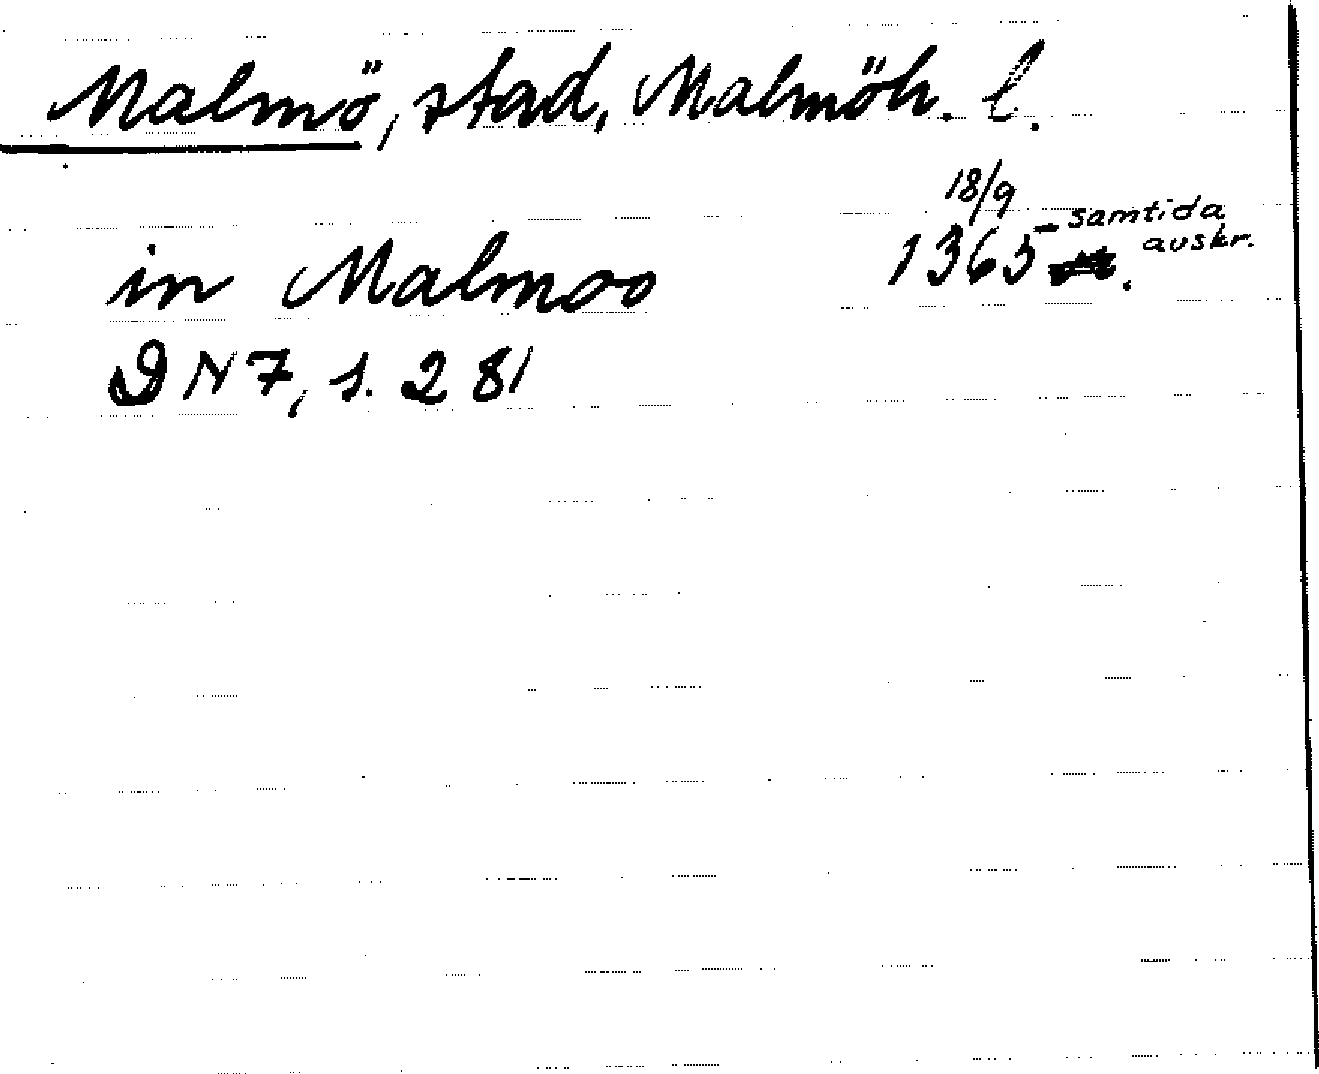 Malmö, stad, Malmöh. l.
18/9
in Malmoo 1365 samtida
avskr.
DN 7, s. 281